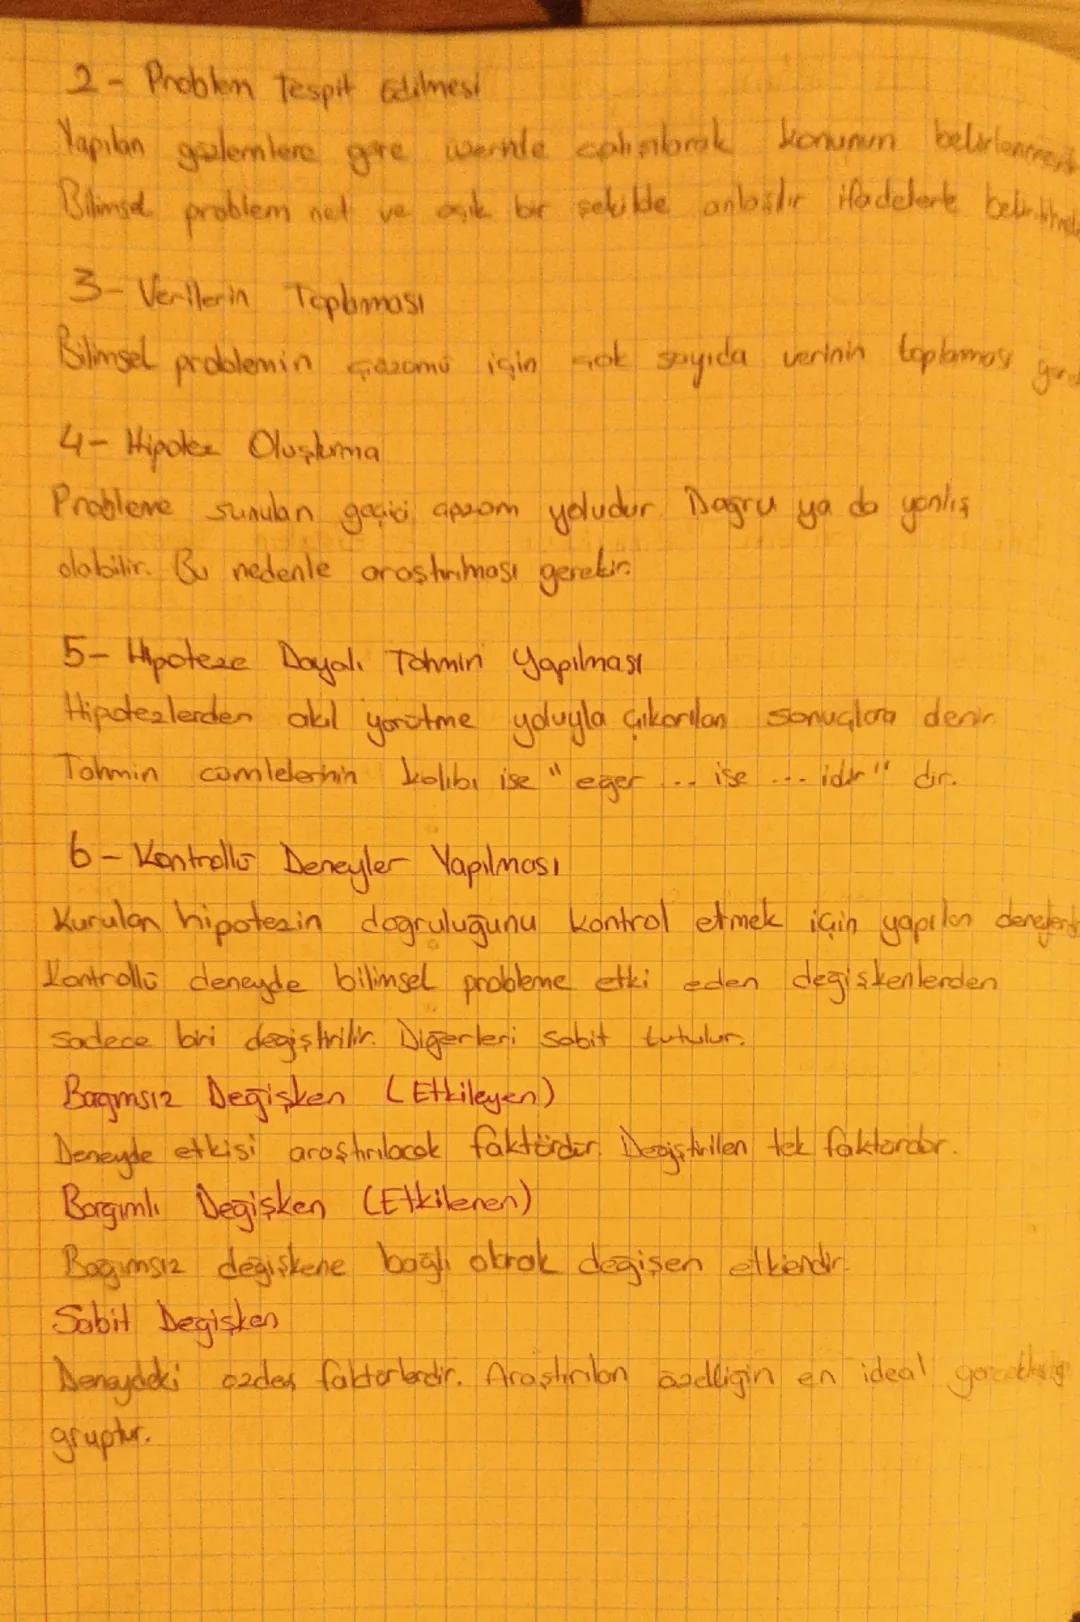 2- Problem Tespit Edilmesi
Yapılan gözlemlere göre üzerinde çalışılarak konunun
Bilimsel problem net ve açık bir şekilde anlaşılır ifadelerle
3- Verilerin Toplanması
Bilimsel problemin çözümü için çok sayıda verinin toplanması
4- Hipotez Oluşturma
Probleme sunulan geçici çözüm yoludur. Doğru ya da yanlış
olabilir. Bu nedenle araştırılması gerekir.
5- Hipoteze Dayalı Tahmin Yapılması
Hipotezlerden akıl yürütme yoluyla çıkarılan sonuçlara denir.
Tahmin cümlelerinin kalıbı ise "eğer ... ise ... idir" dir.
6- Kontrollü Deneyler Yapılması
Kurulan hipotezin doğruluğunu kontrol etmek için yapılan
Kontrollü deneyde bilimsel probleme etki eden değişkenlerden
sadece biri değiştirilir. Diğerleri sabit tutulur.
Bağımsız Değişken (Etkileyen)
Deneyde etkisi araştırılacak faktördür. Değiştirilen tek faktördür.
Bağımlı Değişken (Etkilenen)
Bağımsız değişkene bağlı olarak değişen etkendir.
Sabit Değişken
Deneydeki özdeş faktörlerdir. Araştırılan özelliğin en ideal
gruptur.